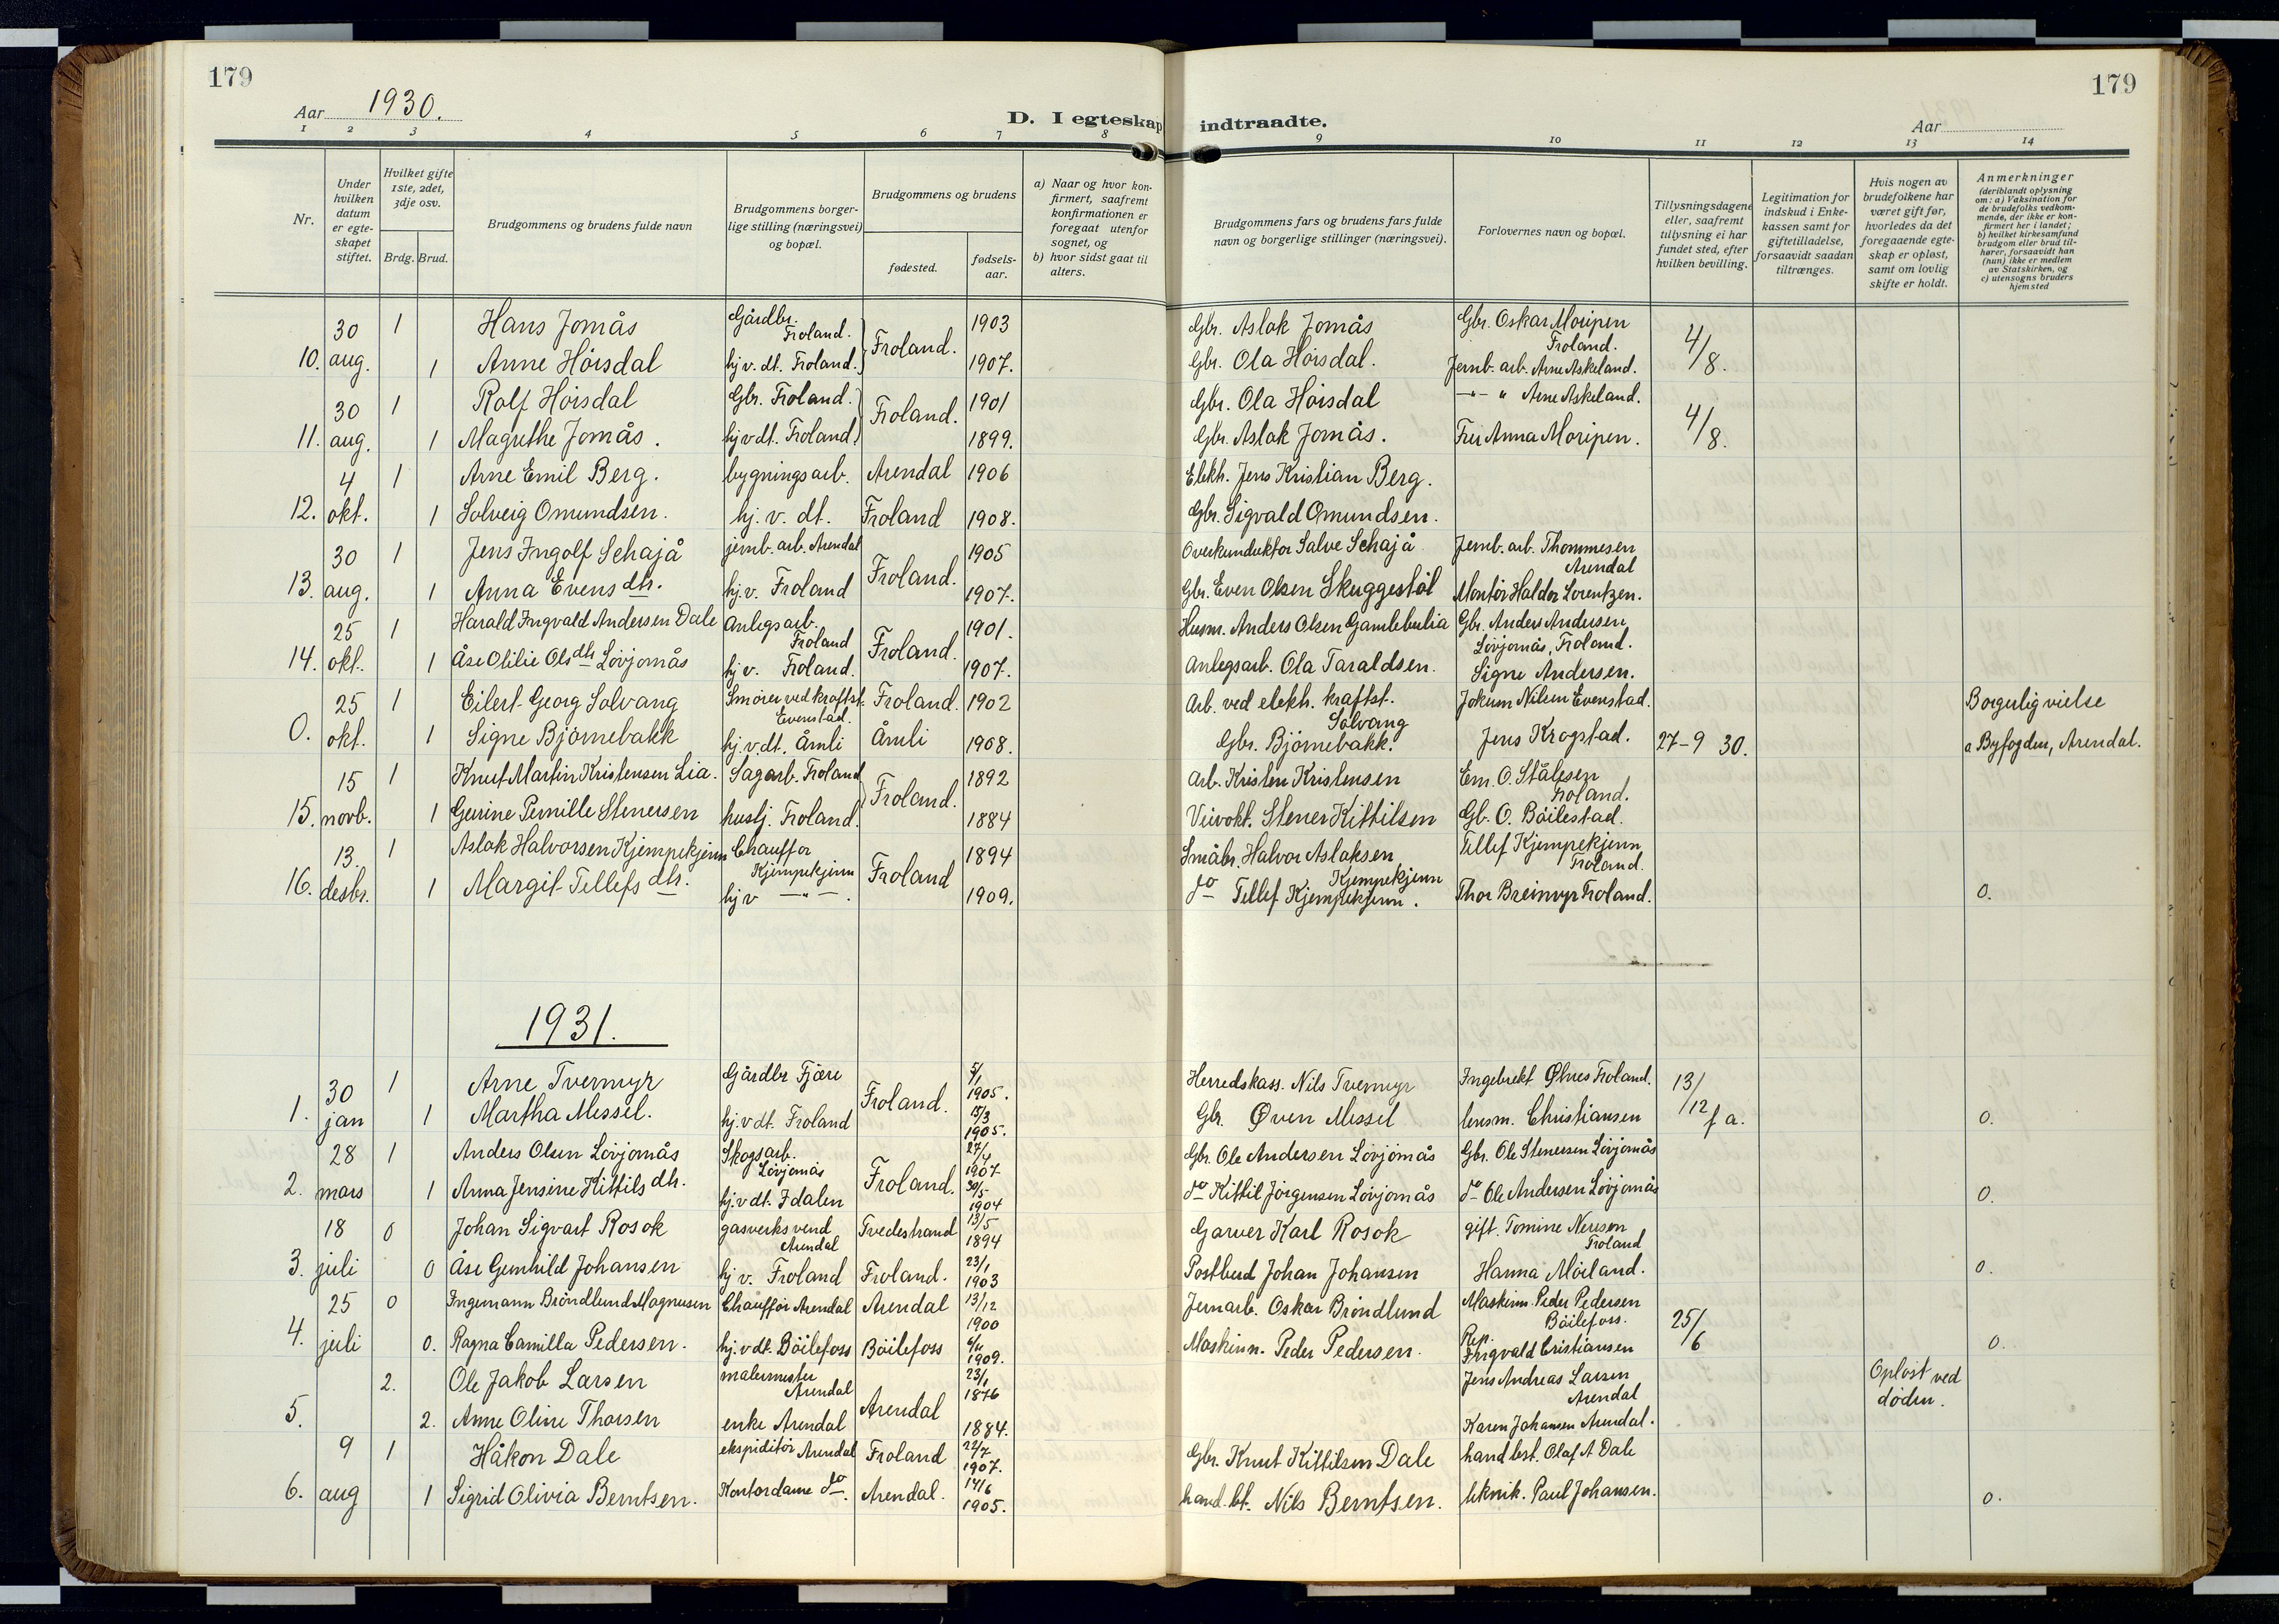 179
179
Aar 1930.
D. I egteskap indtraadte.
Aar
1 2 3 4 5 6 7 8 9 10 11 12 13 14
Nr.
Under hvilken datum er egteskapet stiftet.
Hvilket gifte 1ste, 2det, 3dje osv.
Brdg. Brud.
Brudgommens og brudens fulde navn
Brudgommens borgerlige stilling (næringsvei) og bopæl.
Brudgommens og brudens
fødested.
fødselsaar.
a) Naar og hvor konfirmert, saafremt konfirmationen er foregaat utenfor sognet, og
b) hvor sidst gaat til alters.
Brudgommens fars og brudens fars fulde navn og borgerlige stillinger (næringsvei).
Forlovernes navn og bopæl.
Tillysningsdagene eller, saafremt tillysning ei har fundet sted, efter hvilken bevilling.
Legitimation for indskud i Enkekassen samt for giftetilladelse, forsaavidt saadan tiltrænges.
Hvis nogen av brudefolkene har været gift før, hvorledes da det foregaaende egteskap er opløst, samt om lovlig skifte er holdt.
Anmerkninger
(deriblandt oplysning om: a) Vaksination for de brudefolks vedkommende, der ikke er konfirmert her i landet; b) hvilket kirkesamfund brudgom eller brud tilhører, forsaavidt han (hun) ikke er medlem av Statskirken, og c) utensogns bruders hjemsted
30 1 Hans Jomås Gårdbr. Froland. 1903 Gbr. Aslak Jomås Gbr. Oskar Moripen Froland. 4/8.
10. aug. 1 Anne Hörsdal hj v. dt. Froland. Froland. 1907. Gbr. Ola Hörsdal. Jernb. arb. Arne Askeland.
30 1 Rolf Hörsdal Gbr. Froland. Froland. 1901 Gbr. Ola Hörsdal —"— " Arne Askeland. 4/8.
11. aug. 1 Magrethe Jomås. hj v dt. Froland. 1899. Gbr. Aslak Jomås. Fru Anna Moripen.
4 1 Arne Emil Berg. bygningsarb. Arendal 1906 Elekt. Jens Kristian Berg.
12. okt. 1 Solveig Omundsen. hj. v. dt. Froland 1908. Gbr. Sigvald Omundsen.
30 1 Jens Ingolf Schajå jernb. arb. Arendal Froland. 1905 Overkonduktør Salve Schajå Jernb. arb. Thommesen Arendal
13. aug. 1 Anna Evens dtr. hj. v. Froland 1907. Gbr. Even Olsen Skuggestöl Montör Haldor Lorentzen.
25 1 Harald Ingvald Andersen Dale Anlegsarb. Froland Froland. 1901. Husm. Anders Olsen Gamlebulia Gbr. Anders Andersen Lövjomås, Froland.
14. okt. 1 Åse Otilie Ols dtr Lövjomås hj v. Froland. 1907. Anlegsarb. Ola Taraldsen. Signe Andersen.
25 1 Eilert Georg Solvang Smörer ved kraftst. Evenstad. Froland. 1902 Arb. ved elektr. kraftst. Solvang Jokum Nilsen Evenstad. Borgerlig vielse
0. okt. 1 Signe Björnebakk hj. v. dt. Åmli Åmli 1908. Gbr. Björnebakk. Jens Krogstad. 27-9 30. a Byfogden, Arendal.
15 1 Knut Martin Kristensen Lia. Sagarb. Froland Froland. 1892 Arb. Kristen Kristensen Em. O. Stålesen Froland.
15. novb. 1 Gurine Pernille Stenersen huslj. Froland. 1884 Stener Kittilsen Gb. O. Böilestad.
13. 1 Aslak Halvorsen Kjempekjenn Chauffør Kjempekjenn Froland 1894 Småbr. Halvor Aslaksen Kjempekjenn Tellef Kjempekjenn Froland.
16. desbr. 1 Margit Tellefs dtr. hj v —"—. 1909. do Tellef Kjempekjenn. Thor Breimyr Froland. 0.
1931.
30 1 Arne Tvermyr Gårdbr Fjære Froland. 5/1 1905. Herredskass. Nils Tvermyr Ingebrekt Ølnes Froland. 13/12 f a.
1. jan 1 Martha Messel. hj. v dt. Froland 15/3 1905. Gbr. Øven Messel lensm. Christiansen 0.
28 1 Anders Olsen Lövjomås Skogsarb. Lövjomås Froland. 27/4 1907 Gbr. Ole Andersen Lövjomås Gbr. Ole Stenersen Lövjomås
2. mars 1 Anna Jensine Kittils dtr. hj. v dt. Idalen 30/5 1904 do Kittil Jörgensen Lövjomås do Ole Andersen Lövjomås 0.
18 0 Johan Sigvart Rosok gasverksvend Arendal Tvedestrand 13/5 1894 Garver Karl Rosok gift. Tomine Nersen Froland
3. juli 0 Åse Gunhild Johansen hj v. Froland Froland. 23/1 1903 Postbud Johan Johansen Hanna Möiland. 0.
25 0 Ingemann Bröndlund Magnusen Chauffør Arendal Arendal 13/12 1900 Jernarb. Oskar Bröndlund Maskinm. Peder Pedersen Böilefoss. 25/6
4. juli 0. Ragna Camilla Pedersen. hj. v dt. Böilefoss Böilefoss 6/11 1909. Maskinm. Peder Pedersen. Rep. Ingvald Cristiansen 0.
2. Ole Jakob Larsen malermester Arendal Arendal 23/1 1876 Jens Andreas Larsen Arendal Oplöst ved døden.
5. 2. Anne Oline Thorsen enke Arendal 1884. Karen Johansen Arendal.
9 1 Håkon Dale ekspiditör Arendal Froland 22/7 1907. Gbr. Knut Kittilsen Dale hand best. Olaf A Dale
6. aug 1 Sigrid Olivia Berntsen. Kontordame do. Arendal. 14/6 1905. hand. bt. Nils Berntsen. teknik. Paul Johansen. 0.